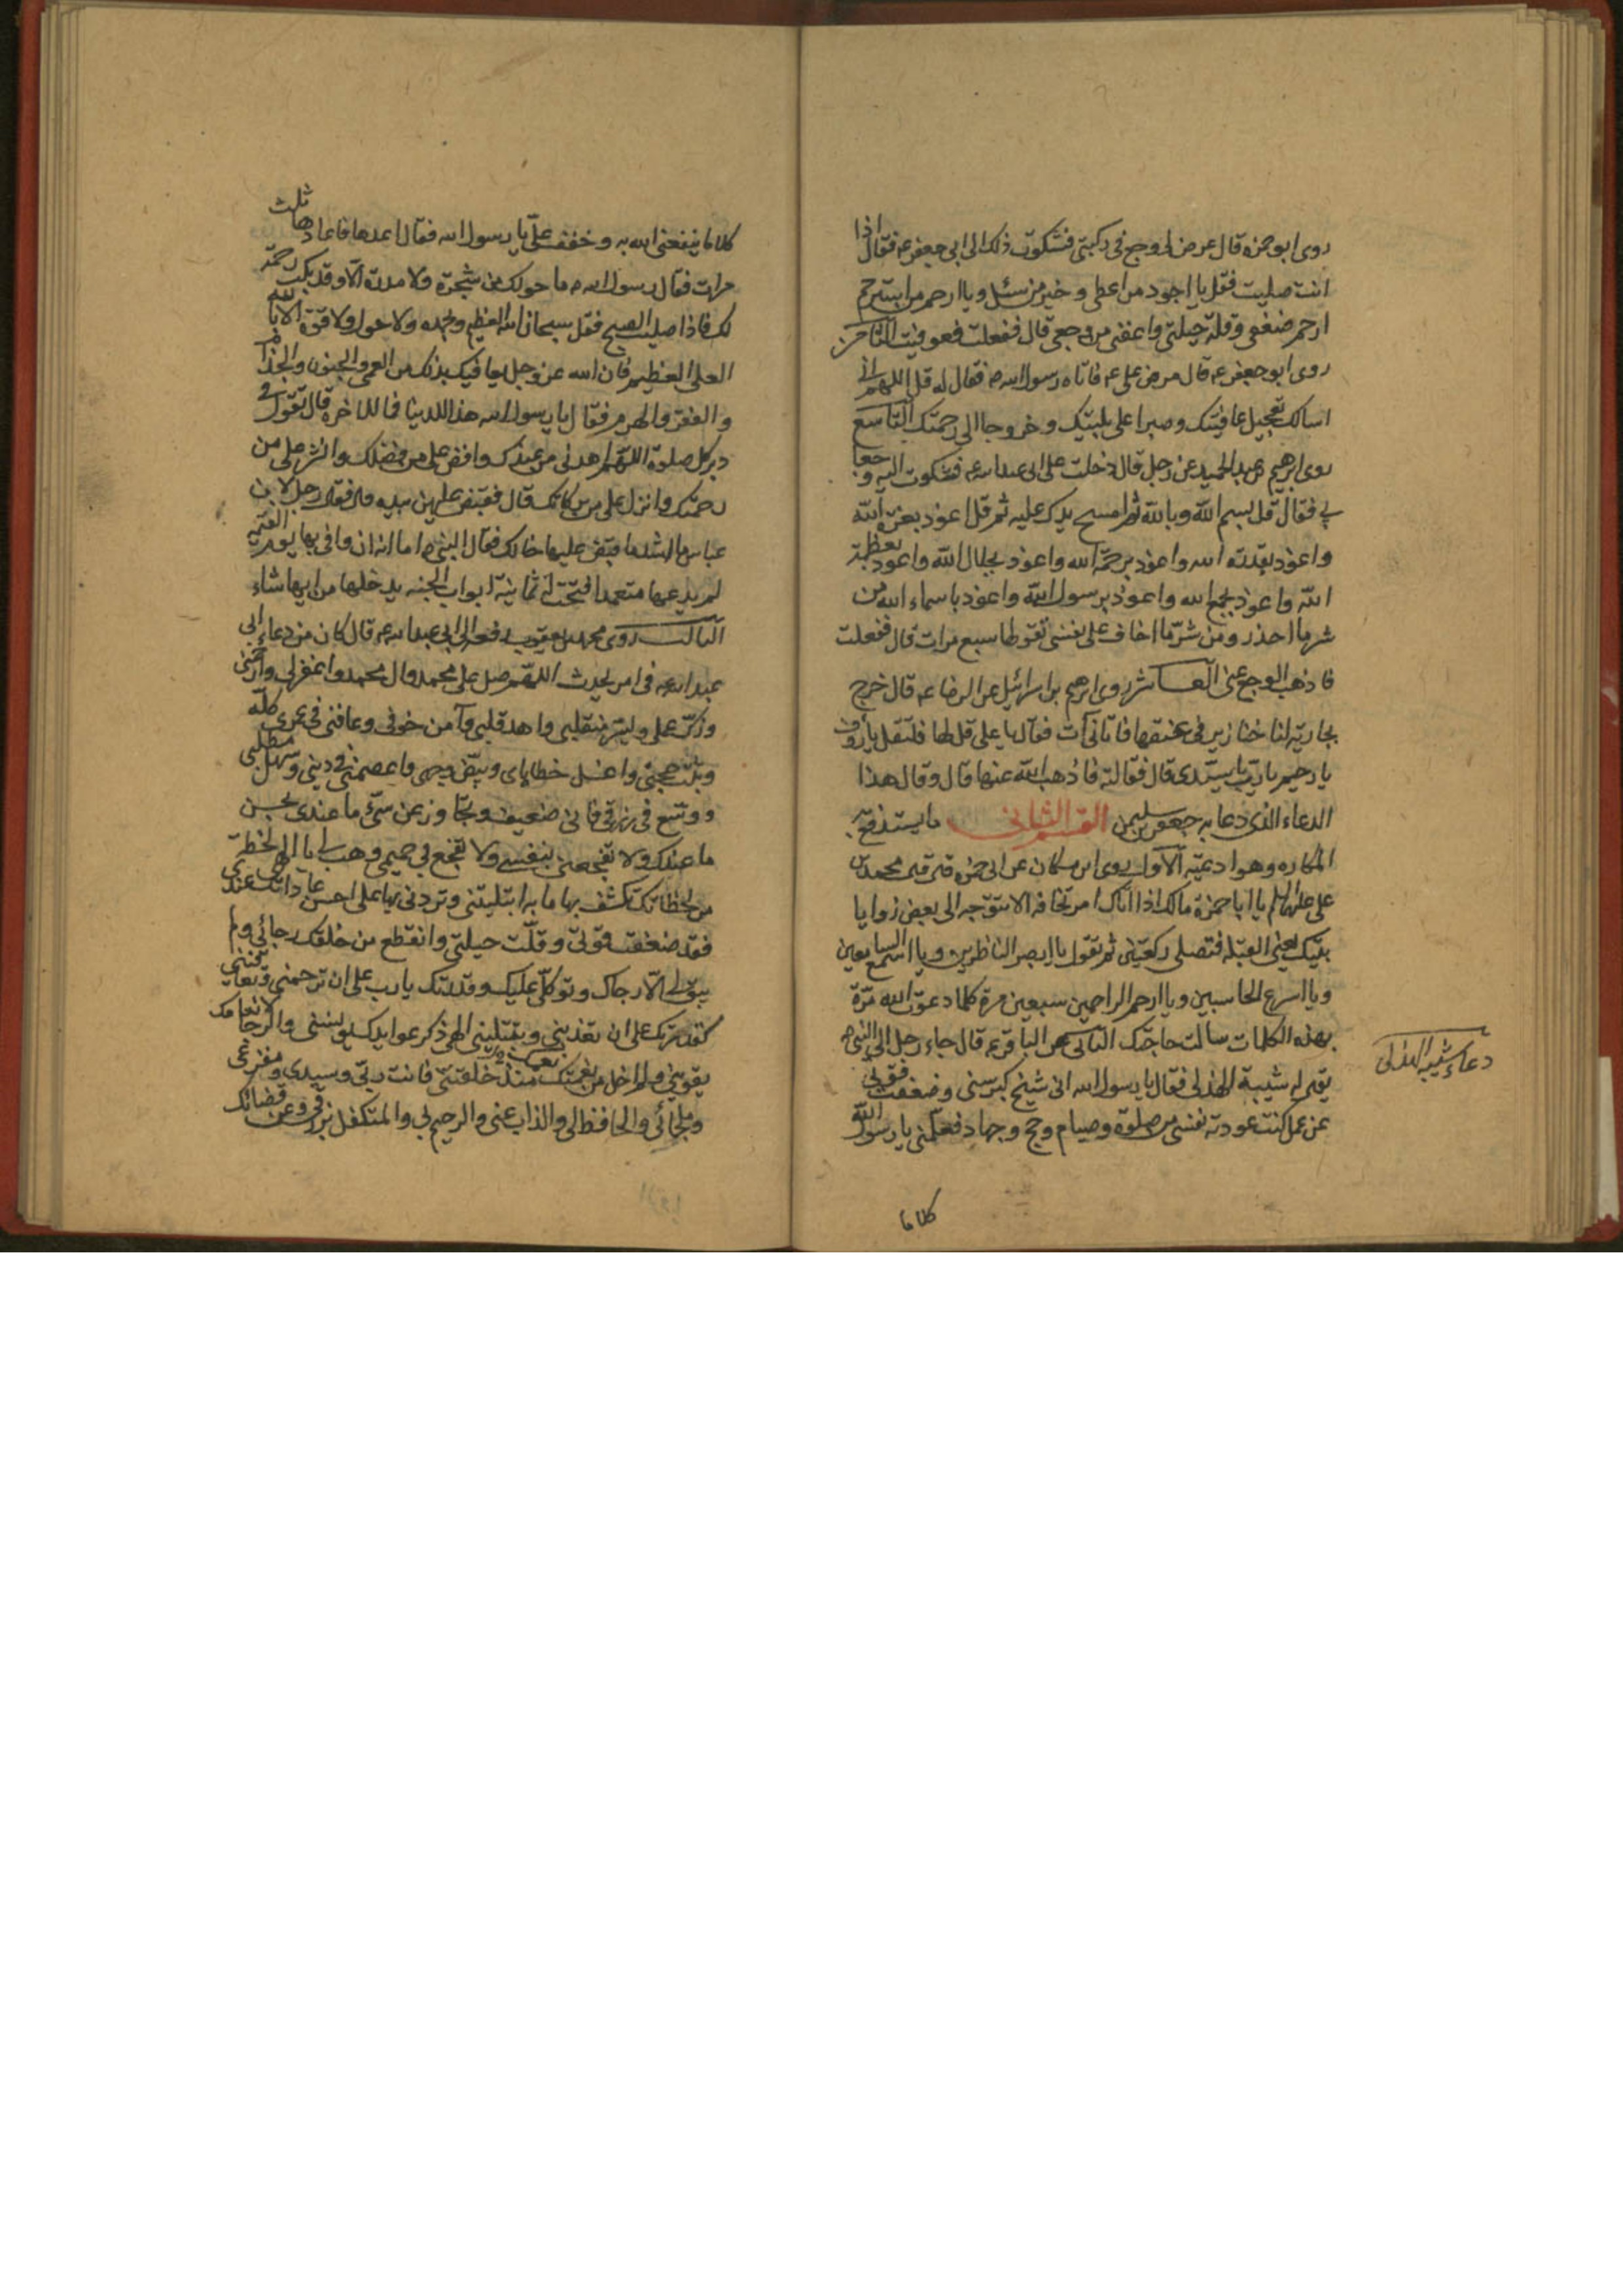 روى ابو حمزة قال عرض لي وجع في ركبتي فشكوت ذلك الى ابي جعفر ع فقال اذا
انت صليت فقل يا اجود من اعطى و خير من سئل ويا ارحم من استرحم
ارحم ضعفي وقلة حيلتي واعفني من وجعي قال ففعلت فعوفيت الثامن
روى ابو جعفر ع قال مرض علي ع فاتاه رسول الله ص فقال له قل اللهم اني
اسالك تعجيل عافيتك وصبرا على بليتك و خروجا الى رحمتك التاسع
روى ابرهيم بن عبد الحميد عن رجل قال دخلت على ابي عبد الله ع فشكوت اليه وجعا
بي فقال قل بسم الله وبالله ثم امسح يدك عليه ثم قل اعوذ بعزة الله
واعوذ بقدرة الله واعوذ برحمة الله واعوذ بجلال الله واعوذ بعظمة
الله واعوذ بجمع الله واعوذ برسول الله واعوذ باسماء الله من
شر ما احذر ومن شر ما اخاف على نفسي تقولها سبع مرات قال ففعلت
فاذهب الوجع عني العاشر روى ابرهيم بن اسرائيل عن الرضا ع قال خرج
بجارية لنا خنازير في عنقها فاتاني آت فقال يا علي قل لها فلتقل يا رؤف
يا رحيم يا رب يا سيدي قال فقالته فاذهب الله عنها قال وقال هذا
الدعاء الذي دعا به جعفر بن سليمن القسم الثاني ما يستدفع به
المكاره وهو ادعية الاول روى ابن مسكان عن ابي حمزة قال قال محمد بن
علي عليهما السلم يا ابا حمزة مالك اذا اتاك امر تخافه الا تتوجه الى بعض زوايا
بيتك يعني القبلة فتصلي ركعتين ثم تقول يا ابصر الناظرين ويا اسمع السامعين
ويا اسرع الحاسبين ويا ارحم الراحمين سبعين مرة كلما دعوت الله مرة
بهذه الكلمات سالت حاجتك الثاني عن الباقر ع قال جاء رجل الى النبي ص
يقم له شيبة الهذلي فقال يا رسول الله اني شيخ كبر سني وضعفت قوتي
عن عمل كنت عودته نفسي من صلوة وصيام وحج وجهاد فعلمني يا رسول الله
كلاما
دعاء شيبه الهذلي
كلاما ينفعني الله به و خفف علي يا رسول الله فقال اعدها فاعادها ثلث
مرات فقال رسول الله ص ما حولك من شجرة ولا مدرة الا وقد بكت رحمة
لك فاذا صليت الصبح فقل سبحان الله العظيم وبحمده ولا حول ولا قوة الا بالله
العلي العظيم فان الله عز وجل يعافيك بذلك من العمى والجنون والجذام
والفقر والهرم فقال يا رسول الله هذا للدنيا فما للاخرة قال تقول في
دبر كل صلوة اللهم اهدني من عندك وافض علي من فضلك وانشر علي من
رحمتك وانزل علي من بركاتك قال فقبض عليهن بيده قال فقال رجل لابن
عباس ما اشد ما قبض عليها خالك فقال النبي ص اما انه ان وافى بها يوم القيمه
لم يدعها متعمدا فتحت له ثمانية ابواب الجنه يدخلها من ايها شاء
الثالث روى محمد بن يعقوب رفعه الى ابي عبد الله ع قال كان من دعاء ابي
عبد الله ع في امر يحدث اللهم صل على محمد وال محمد واغفر لي وارحمني
وزك عملي ويسر منقلبي واهد قلبي وآمن خوفي وعافني في عمري كله
وثبت حجتي واغسل خطاياي وبيض وجهي واعصمني في ديني وسهل مطلبي
ووسع في رزقي فاني ضعيف وتجاوز عن سيئ ما عندي بحسن
ما عندك ولا تفجعني بنفسي ولا تفجع بي حميمي وهب لي يا الهي لحظة
من لحظاتك تكشف بها ما به ابتليتني وتردني بها على احسن عاداتك عندي
فقد ضعفت قوتي وقلت حيلتي وانقطع من خلقك رجائي ولم
يبق لي الا رجاك وتوكلي عليك وقدرتك يا رب علي ان ترحمني وتعافيني
كقدرتك علي ان تعذبني وتبتليني الهي ذكر عوايدك يونسني والرجا لانعامك
يقويني ولم اخل من نعمتك منذ خلقتني فانت ربي وسيدي ومفزعي
وملجائي والحافظ لي والذاب عني والرحيم بي والمتكفل برزقي وعن قضائك